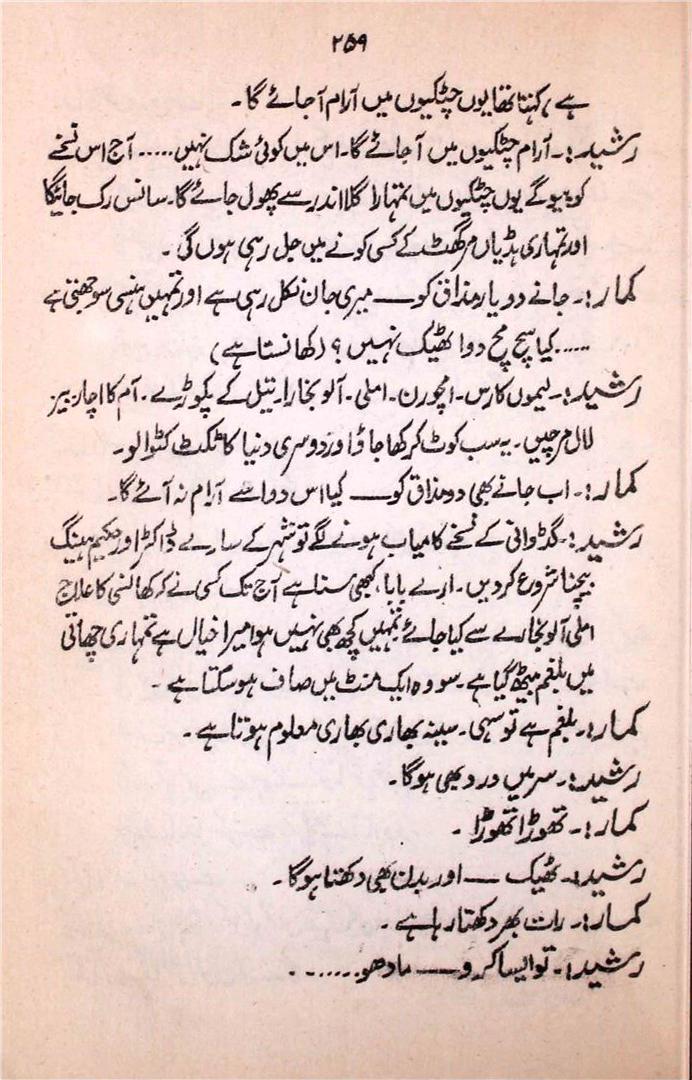 ۲۵۹
ہے، کہتا تھا یوں چٹکیوں میں آرام آ جائے گا۔
رشید:۔ آرام چٹکیوں میں آ جائے گا۔ اس میں کوئی شک نہیں ..... آج اس نسخے
کو پیو گے یوں چٹکیوں میں تمہارا گلا اندر سے پھول جائے گا۔ سانس رک جائیگا
اور تمہاری ہڈیاں مرگھٹ کے کسی کونے میں جل رہی ہوں گی۔
کمار:۔ جانے دو یار مذاق کو ــــ میری جان نکل رہی ہے اور تمہیں ہنسی سوجھتی ہے
..... کیا سچ مچ دوا ٹھیک نہیں؟ (کھانستا ہے)
رشید:۔ لیموں کا رس۔ امچورن۔ املی۔ آلو بخارا۔ تیل کے پکوڑے۔ آم کا اچار بیز
لال مرچیں۔ یہ سب کوٹ کر کھا جاؤ اور دوسری دنیا کا ٹکٹ کٹوا لو۔
کمار:۔ اب جانے بھی دو مذاق کو ــــ کیا اس دوا سے آرام نہ آئے گا۔
رشید:۔ گڈوانی کے نسخے کامیاب ہونے لگے تو شہر کے سارے ڈاکٹر اور حکیم ہینگ
بیچنا شروع کر دیں۔ ارے بابا، کبھی سنا ہے آج تک کسی نے کہ کھانسی کا علاج
املی آلو بخارے سے کیا جائے، تمہیں کچھ بھی نہیں ہوا میرا خیال ہے تمہاری چھاتی
میں بلغم بیٹھ گیا ہے۔ سو وہ ایک منٹ میں صاف ہو سکتا ہے۔
کمار:۔ بلغم ہے تو سہی۔ سینہ بھاری بھاری معلوم ہوتا ہے۔
رشید:۔ سر میں درد بھی ہوگا۔
کمار:۔ تھوڑا تھوڑا۔
رشید:۔ ٹھیک ــــ اور بدن بھی دکھتا ہوگا۔
کمار:۔ رات بھر دکھتا رہا ہے۔
رشید:۔ تو ایسا کرو ــــ مادھو .......